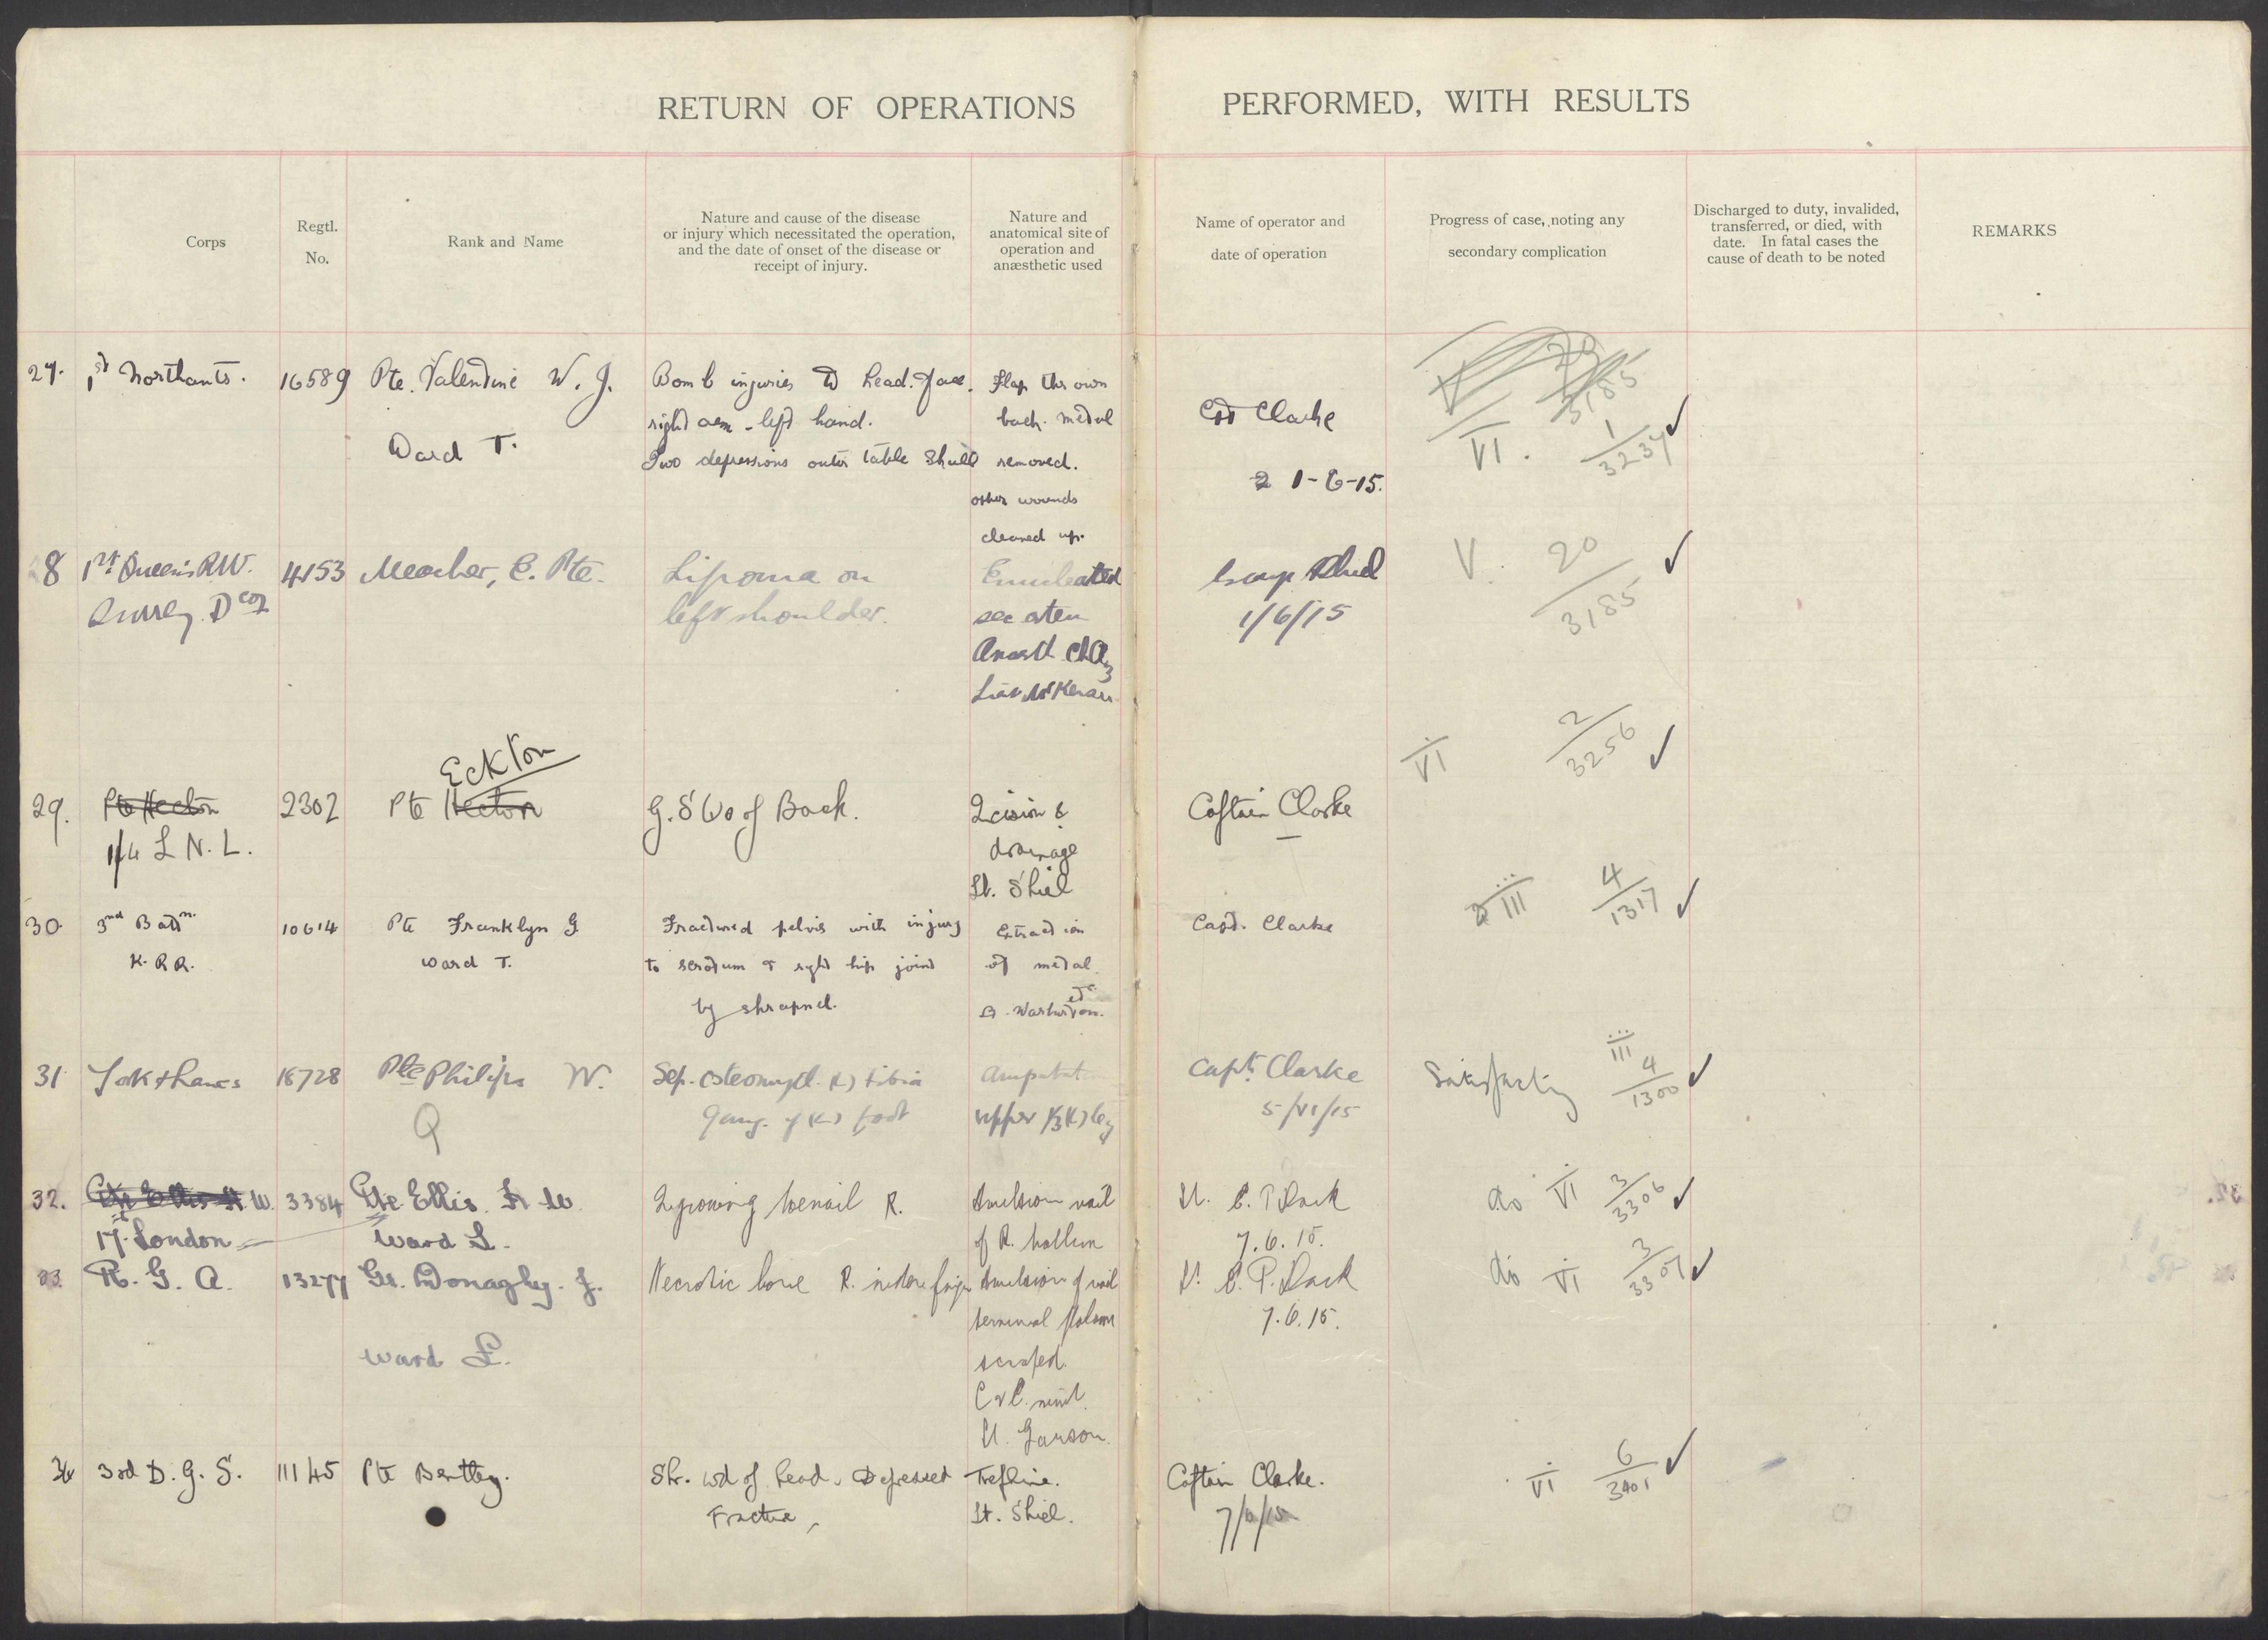 RETURN OF OPERATIONS PERFORMED, WITH RESULTS
Corps
Regtl.
No.
Rank and Name
Nature and cause of the disease
or injury which necessitated the operation,
and the date of onset of the disease or
receipt of injury.
Nature and
anatomical site of
operation and
anæsthetic used
Name of operator and
date of operation
Progress of case, noting any
secondary complication
Discharged to duty, invalided,
transferred, or died, with
date. In fatal cases the
cause of death to be noted
REMARKS
27.
1st Northants.
16589
Pte. Valentine W. J.
Ward T.
Bomb injuries to head. face.
right arm - left hand.
Two depressions outer table skull
Flap thrown
back. metal
removed.
other wounds
cleaned up.
Clarke
1-6-15.
VI.
1/3237 ✓
28
1st Queen's R.W.
Surrey. D Coy
4153
Meacher, E. Pte.
Lipoma on
left shoulder.
Enucleated
1/6/15
V.
20/3185 ✓
29.
Pte Hecton
1/4 L N. L.
2302
Eckton
Pte Hecton
G. S Wo of Back.
Icision &
drainage
Lt. Shiel
Captain Clarke
VI
2/3256 ✓
30.
3rd Battn.
K. R R.
10614
Pte Franklyn G
Ward T.
Fractured pelvis with injury
to scrotum & right hip joint
by shrapnel.
Extraction
of metal etc.
Lt. Warburton.
Capt. Clarke
III
4/1317 ✓
31
York & Lancs
16728
Pte Philips W.
Q
Sep. osteomyel. (L) tibia
gang. of (L) foot
Amputat
upper 1/3 (L) leg
Capt. Clarke
5/VI/15
Satisfactory
III
4/1300 ✓
32.
Pte Ellis H. W.
17th London
3384
Pte Ellis. H W
Ward L.
Ingrowing toenail R.
Avulsion nail
of R. hallux
Lt. C. P.
7.6.15.
do
VI
3/3306 ✓
33.
R. G. A.
13277
Gr. Donaghy. J.
Ward L.
Necrotic bone R. index finger
Avulsion of nail
terminal phalanx
scraped.
Lt. Garson.
Lt. C. P.
7.6.15.
do
VI
3/3307 ✓
34
3rd D. G. S.
11145
Pte Bentley.
Shr. wd of head. Depressed
Fracture,
Trephine.
Lt. Shiel.
Captain Clarke.
7/6/15
VI
6/3401 ✓